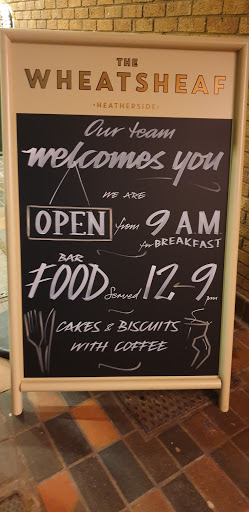 THE
WHEATSHEAF
·HEATHERSIDE·
Our team
welcomes you
WE ARE
OPEN from 9 AM
for BREAKFAST
BAR
FOOD Served 12-9 pm
CAKES & BISCUITS
WITH COFFEE